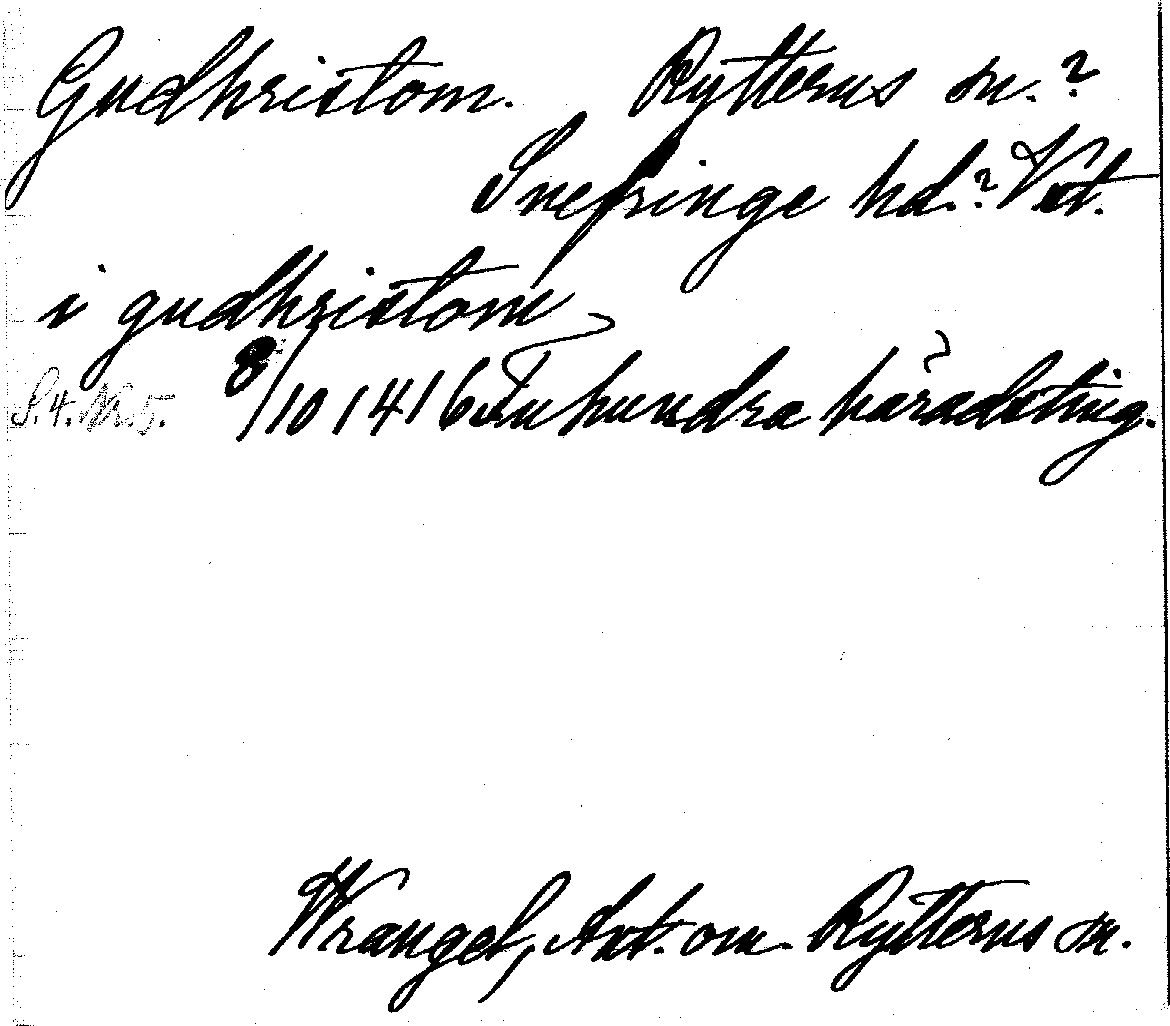 Gudhristom. Rytterns sn.?
Snefringe hd.? Vst.
i gudhristom
S. 4. 8/10 1416 Tuhundra häradsting.
Wrangel, Ant. om Rytterns sn.